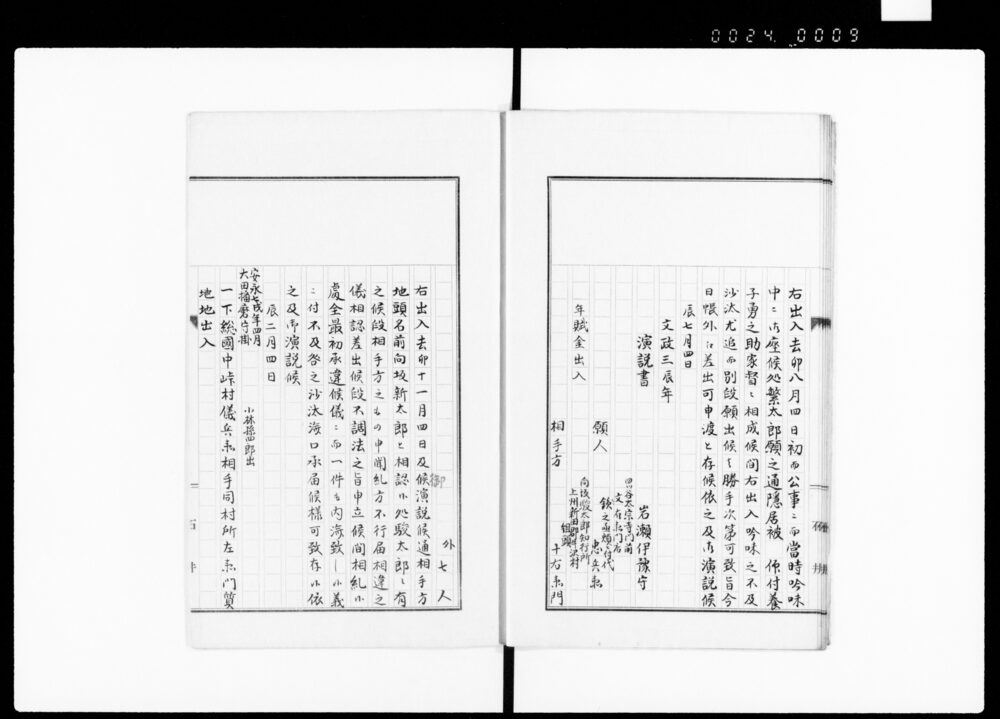 0024 0009
右出入去卯八月四日初而公事ニ而當時吟味
中ニ御座候処繁太郎願之通隠居被 仰付養
子勇之助家督ニ相成候間右出入吟味之不及
沙汰尤追而別段願出候ハ勝手次第可致旨今
日帳外江差出可申渡と存候依之及御演説候
辰七月四日
文政三辰年
演説書
岩瀬伊豫守
四谷太宗寺門前
文右衛門店
願人
忠兵衛
年賦金出入
相手方
組頭
十右衛門
外七人
右出入去卯十一月四日及御候演説候通相手方
地頭名前向坂新太郎と相認候処駿太郎ニ有
之候段相手方之もの申聞糺方不行届相違之
儀相認差出候段不調法之旨申立候間相糺候
處全最初承違候儀ニ而一件も内済致し候義
ニ付不及咎之沙汰済口承届候様可致存候依
之及御演説候
辰二月四日
安永七戌年四月
大田播磨守掛
小林孫四郎出
一下総國中峠村儀兵衛相手同村所左衛門質
地地出入